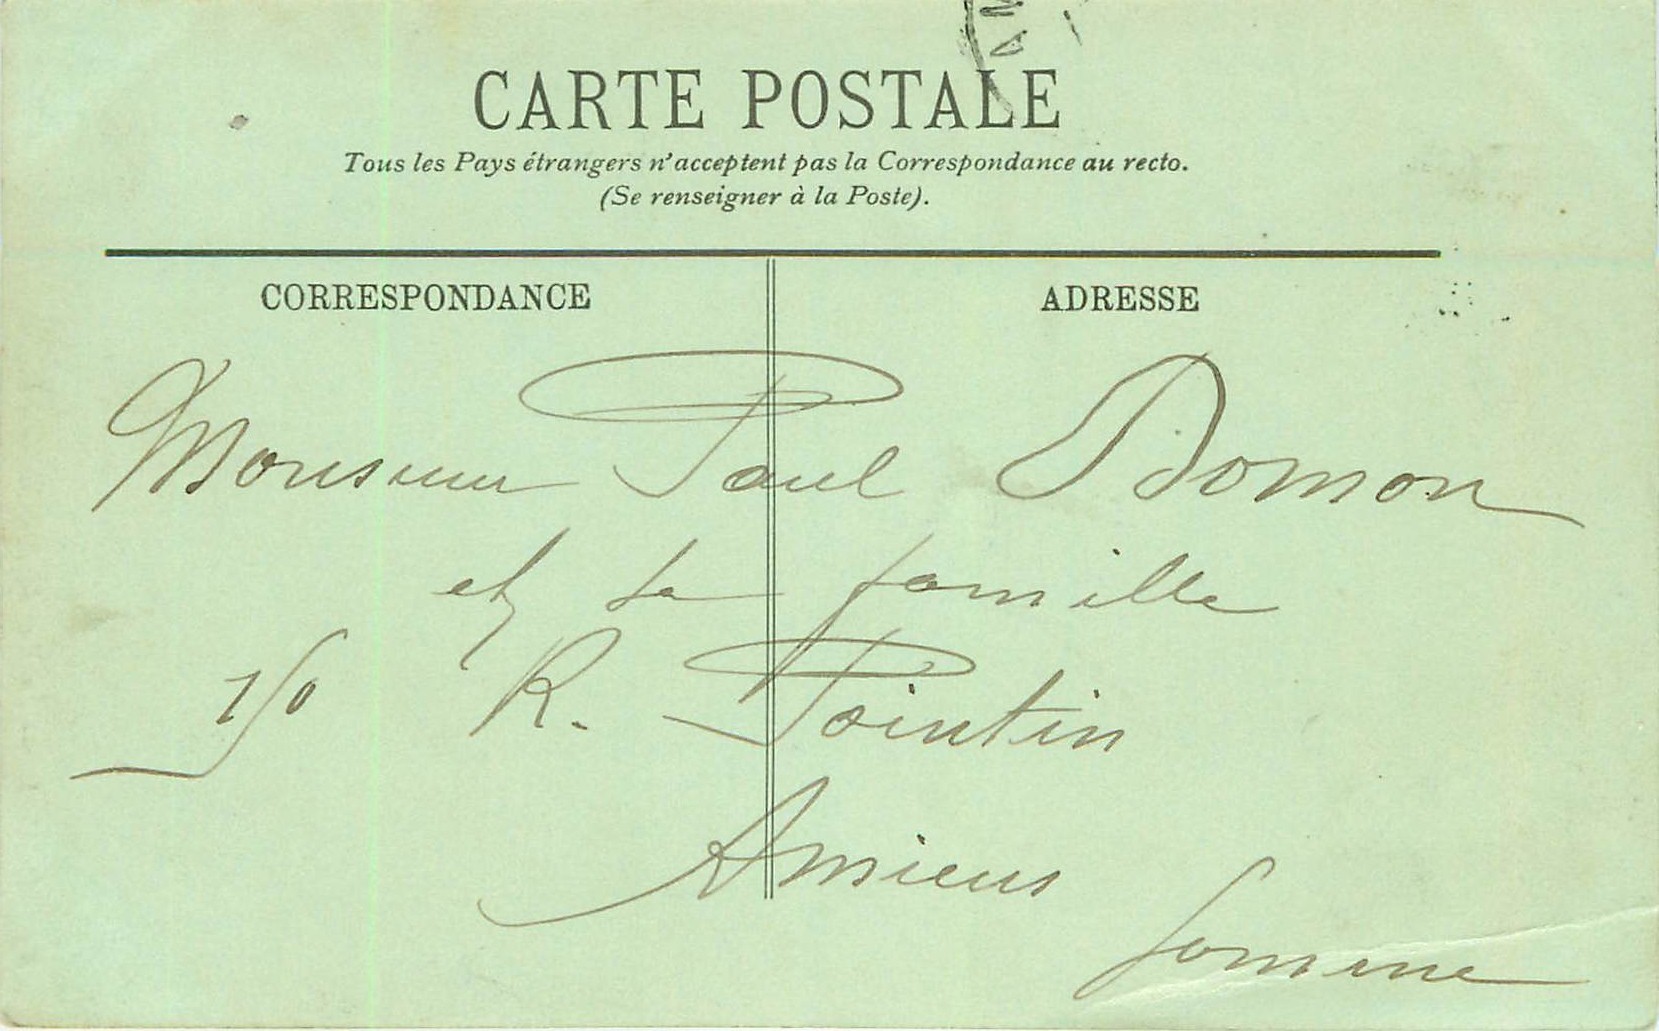 CARTE POSTALE
Tous les Pays étrangers n'acceptent pas la Correspondance au recto.
(Se renseigner à la Poste).
CORRESPONDANCE
ADRESSE
Monsieur Paul Domon
et sa famille
150 R. Pointin
Amiens
Somme